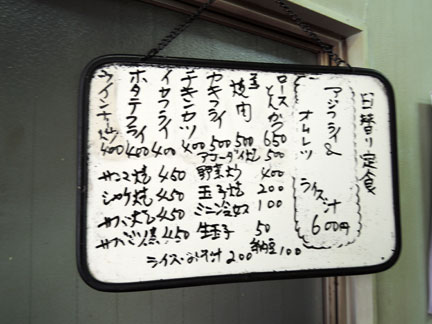 日替り定食
アジフライ&
オムレツ
ライス汁
600円
ロースとんかつ 650
玉焼肉 500
カキフライ 500
チキンカツ 400
イカフライ 400
ホタテフライ 400
ウインナー炒 400
500
野菜炒 400
玉子焼 200
ミニ冷奴 100
生玉子 50
納豆 100
サンマ焼 450
シャケ焼 450
サバ焼 450
サバミソ煮 450
ライス・みそ汁 200